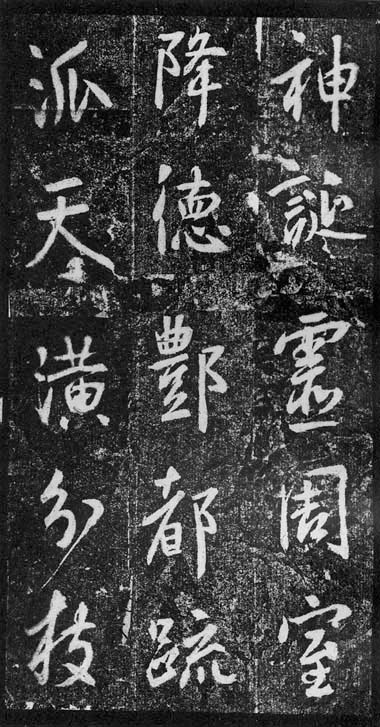 神誕靈周室
降德酆都疏
派天潢分枝